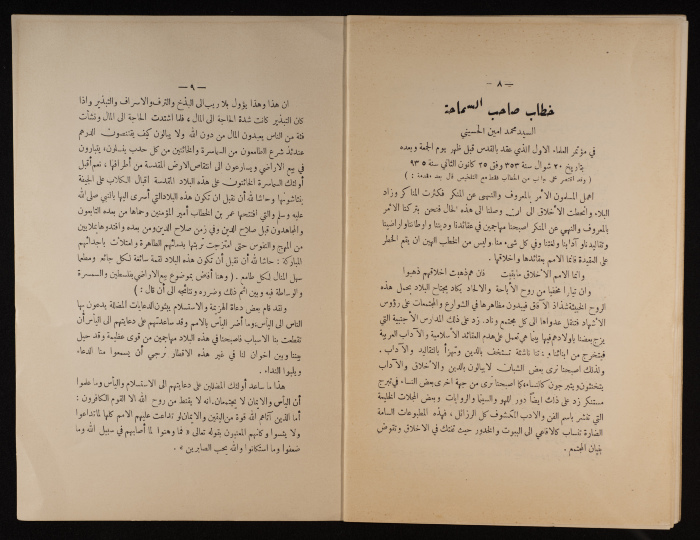 — ٨ —
خطاب صاحب السماحة
السيد محمد امين الحسيني
في مؤتمر العلماء الاول الذي عقد بالقدس قبل ظهر يوم الجمعة وبعده
بتاريخ ٢٠ شوال سنة ٣٥٣ وفق ٢٥ كانون الثاني سنة ٩٣٥
( وقد اقتصر على جانب من الخطاب فقط مع التلخيص قال بعد مقدمة : )
اهمل المسلمون الأمر بالمعروف والنهي عن المنكر فكثرت المناكر وزاد
البلاء وانحطت الأخلاق الى ان وصلنا الى هذه الحال فنحن بتركنا الامر
بالمعروف والنهي عن المنكر اصبحنا مهاجمين في عقائدنا وديننا واوطاننا واراضينا
وتقاليدنا وآدابنا ولغتنا وفي كل شيء منا وليس من الخطب الهين ان يقع الخطر
على العقيدة فانما الامم بعقائدها واخلاقها .
وانما الامم الأخلاق ما بقيت فان هم ذهبت اخلاقهم ذهبوا
وان تيارا مخيفا من روح الأباحة والالحاد يكاد يجتاح البلاد تحمل هذه
الروح الخبيثة شذاذ الآفاق فيبدون مظاهرها في الشوارع والمجتمعات على رؤوس
الأشهاد فتنتقل عدواها الى كل مجتمع وناد. زد على ذلك المدارس الأجنبية التي
يزج بعضنا باولادهم فيها بينما هي تعمل على هدم العقائد الأسلامية والآداب العربية
فيتخرج من ابنائنا و : تنا ناشئة تستخف بالدين وتهزأ بالتقاليد والآداب .
ولذلك اصبحنا نرى بعض الشبان لا يبالون بالدين والأخلاق والآداب
يتخنثون ويتبرجون كالنساء كما اصبحنا نرى من جهة اخرى بعض النساء في تبرج
مستنكر زد على ذلك ايضاً دور اللهو والسينما والروايات وبعض المجلات الخليعة
التي تنشر باسم الفن والادب المكشوف كل الرزائل ، فهذه المطبوعات السامة
الضارة تنساب كالافاعي الى البيوت والخدور حيث تفتك في الاخلاق وتقوض
بنيان المجتمع .
— ٩ —
ان هذا وهذا يؤول بلا ريب الى البذخ والترف والاسراف والتبذير واذا
كان التبذير كانت شدة الحاجة الى المال ، فلما اشتدت الحاجة الى المال ونشأت
فئة من الناس يعبدون المال من دون الله ولا يبالون كيف يقتنصون الدرهم
عندئذ شرع الطامعون من السماسرة والخائنين من كل حدب ينسلون، يتبارون
في بيع الاراضي ويسارعون الى انتقاص الارض المقدسة من أطرافها ، نعم أقبل
أولئك السماسرة الخائنون على هذه البلاد المقدسة اقبال الكلاب على الجيفة
ينتاشونها وحاشا لله أن نقبل ان تكون هذه البلاد التي أسرى اليها بالنبي صلى الله
عليه وسلم والتي افتتحها عمر بن الخطاب أمير المؤمنين وحماها من بعده التابعون
والمجاهدون قبل صلاح الدين وفي زمن صلاح الدين ومن بعده وافتدوها بملايين
من المهج والنفوس حتى امتزجت تربتها بدمائهم الطاهرة وامتلأت باجداثهم
المباركة : حاشا لله أن نقبل أن تكون هذه البلاد لقمة سائغة لكل جائع ومطمعا
سهل المنال لكل طامع . ( وهنا أفاض بموضوع بيع الاراضي بفلسطين والسمسرة
والوساطة فيه وبين اثم ذلك وضرره ونتائجه الى ان قال : )
ولقد قام بعض دعاة الهزيمة والاستسلام يبثون الدعايات المضللة يدعون بها
الناس الى اليأس، وما أضر اليأس بالامم وقد ساعدتهم على دعايتهم الى اليأس أن
تقطعت بنا الاسباب فاصبحنا في هذه البلاد مهاجمين من قوى عظيمة وقد حيل
بيننا وبين اخوان لنا في غير هذه الاقطار نرجى أن يسمعوا منا الدعاء
ويلبوا النداء .
هذا ما ساعد أولئك المضللين على دعايتهم الى الاستسلام واليأس وما علموا
أن اليأس والايمان لا يجتمعان. انه لا يقنط من روح الله الا القوم الكافرون :
أما الذين آتاهم الله قوة من اليقين والايمان لو تداعت عليهم الامم كلها لما تداعوا
ولا يئسوا وكانهم المعنيون بقوله تعالى « فما وهنوا لما أصابهم في سبيل الله وما
ضعفوا وما استكانوا والله يحب الصابرين » .